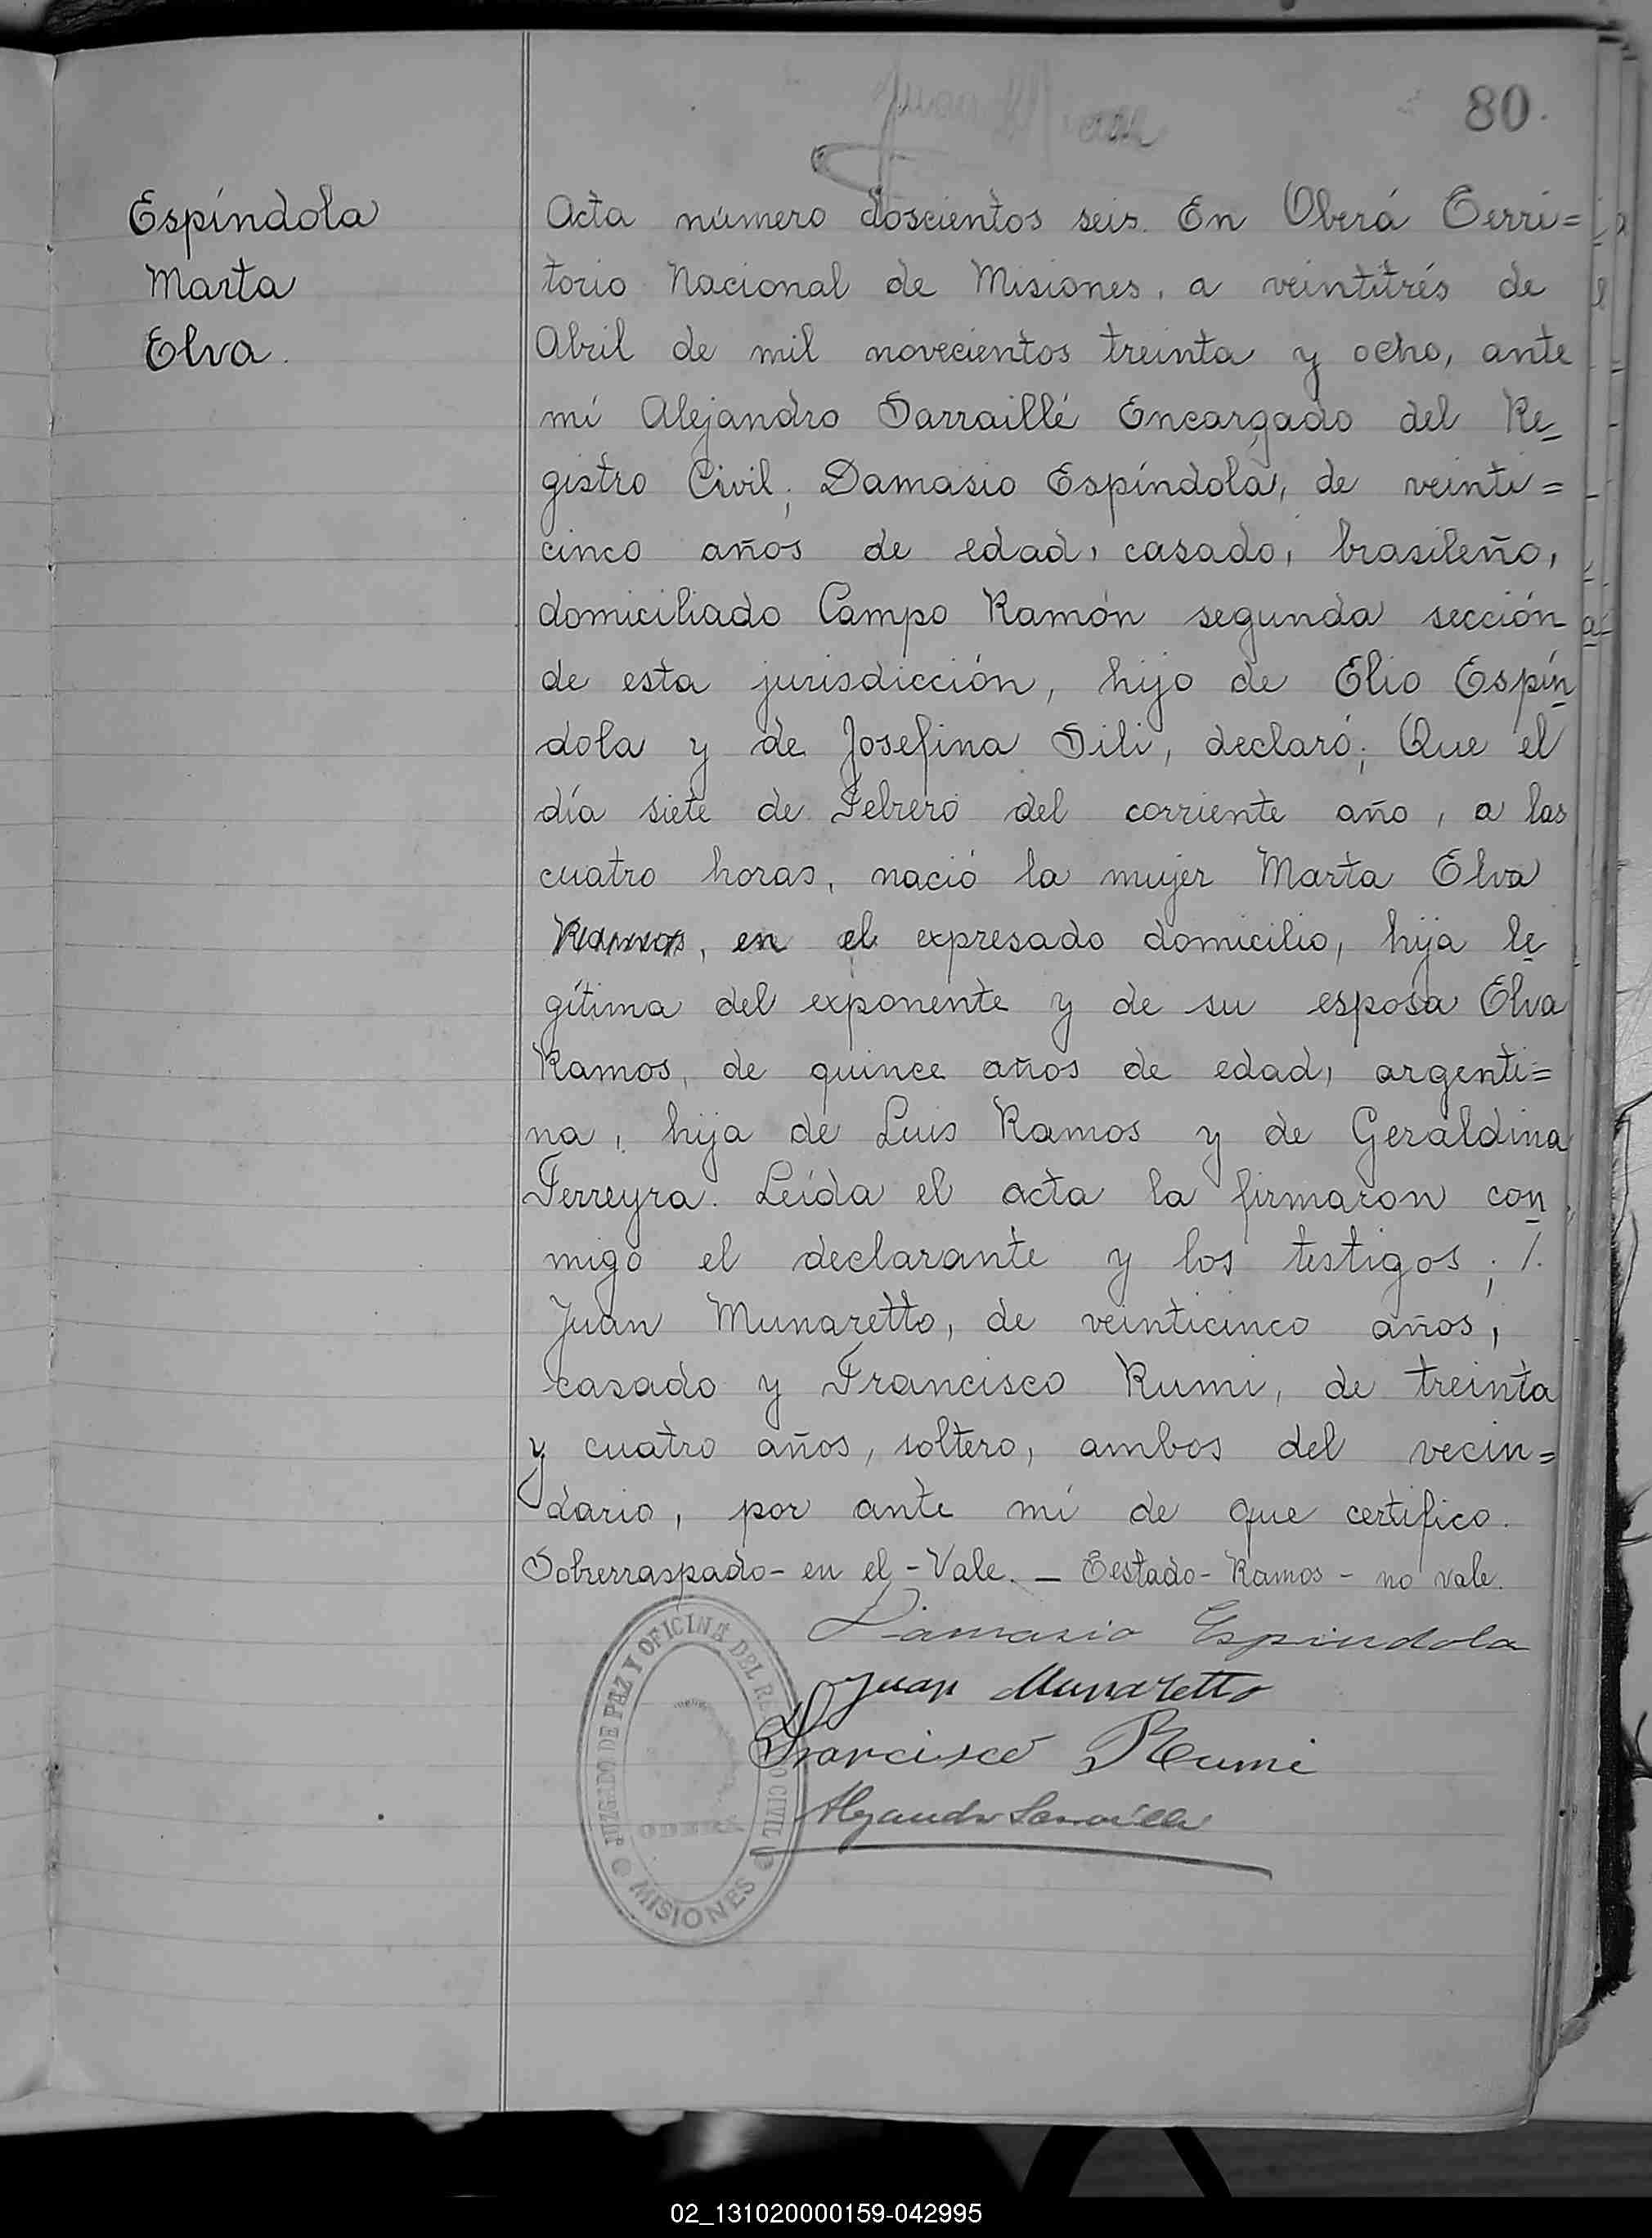 80.
Espíndola
Marta
Elva.
Acta número doscientos seis. En Oberá Terri=
torio Nacional de Misiones, a veintitrés de
Abril de mil novecientos treinta y ocho, ante
mí Alejandro Sarraillé Encargado del Re-
gistro Civil; Damasio Espíndola, de veinti=
cinco años de edad, casado, brasileño,
domiciliado Campo Ramón segunda sección
de esta jurisdicción, hijo de Elio Espín
dola y de Josefina Sili, declaró; Que el
día siete de Febrero del corriente año, a las
cuatro horas, nació la mujer Marta Elva
Ramos, en el expresado domicilio, hija le
gítima del exponente y de su esposa Elva
Ramos, de quince años de edad, argenti=
na, hija de Luis Ramos y de Geraldina
Ferreyra. Leída el acta la firmaron con
migo el declarante y los testigos; /.
Juan Munaretto, de veinticinco años,
casado y Francisco Rumi, de treinta
y cuatro años, soltero, ambos del vecin=
dario, por ante mí de que certifico.
Sobrerraspado - en el - Vale. - Testado - Ramos - no vale.
Damasio Espindola
Juan Munaretto
Francisco Rumi
Alejandro Sarraillé
JUZGADO DE PAZ Y OFICINA DEL REGISTRO CIVIL
OBERÁ
MISIONES
02_131020000159-042995